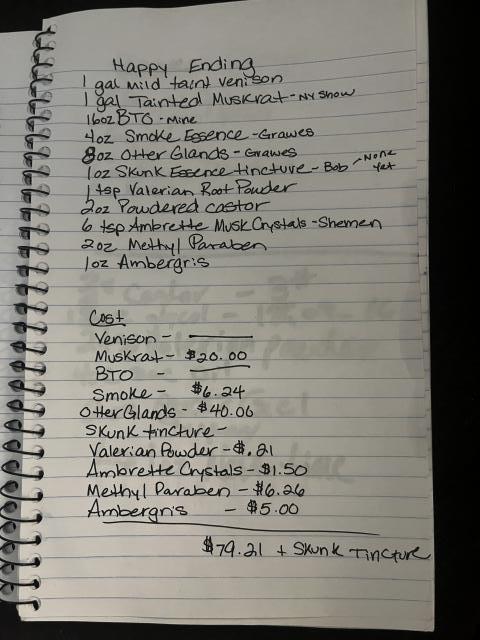 Happy Ending
1 gal mild taint venison
1 gal Tainted Muskrat - NY Show
16oz BTO - Mine
4oz Smoke Essence - Grawes
8oz Otter Glands - Grawes
1oz Skunk Essence tincture - Bob - None Yet
1 tsp Valerian Root Powder
2oz Powdered castor
6 tsp Ambrette Musk Crystals - Shemen
2oz Methyl Paraben
1oz Ambergris
Cost
Venison -
Muskrat - $20.00
BTO -
Smoke - $6.24
Otter Glands - $40.00
Skunk tincture -
Valerian Powder - $.21
Ambrette Crystals - $1.50
Methyl Paraben - $6.26
Ambergris - $5.00
$79.21 + Skunk Tincture